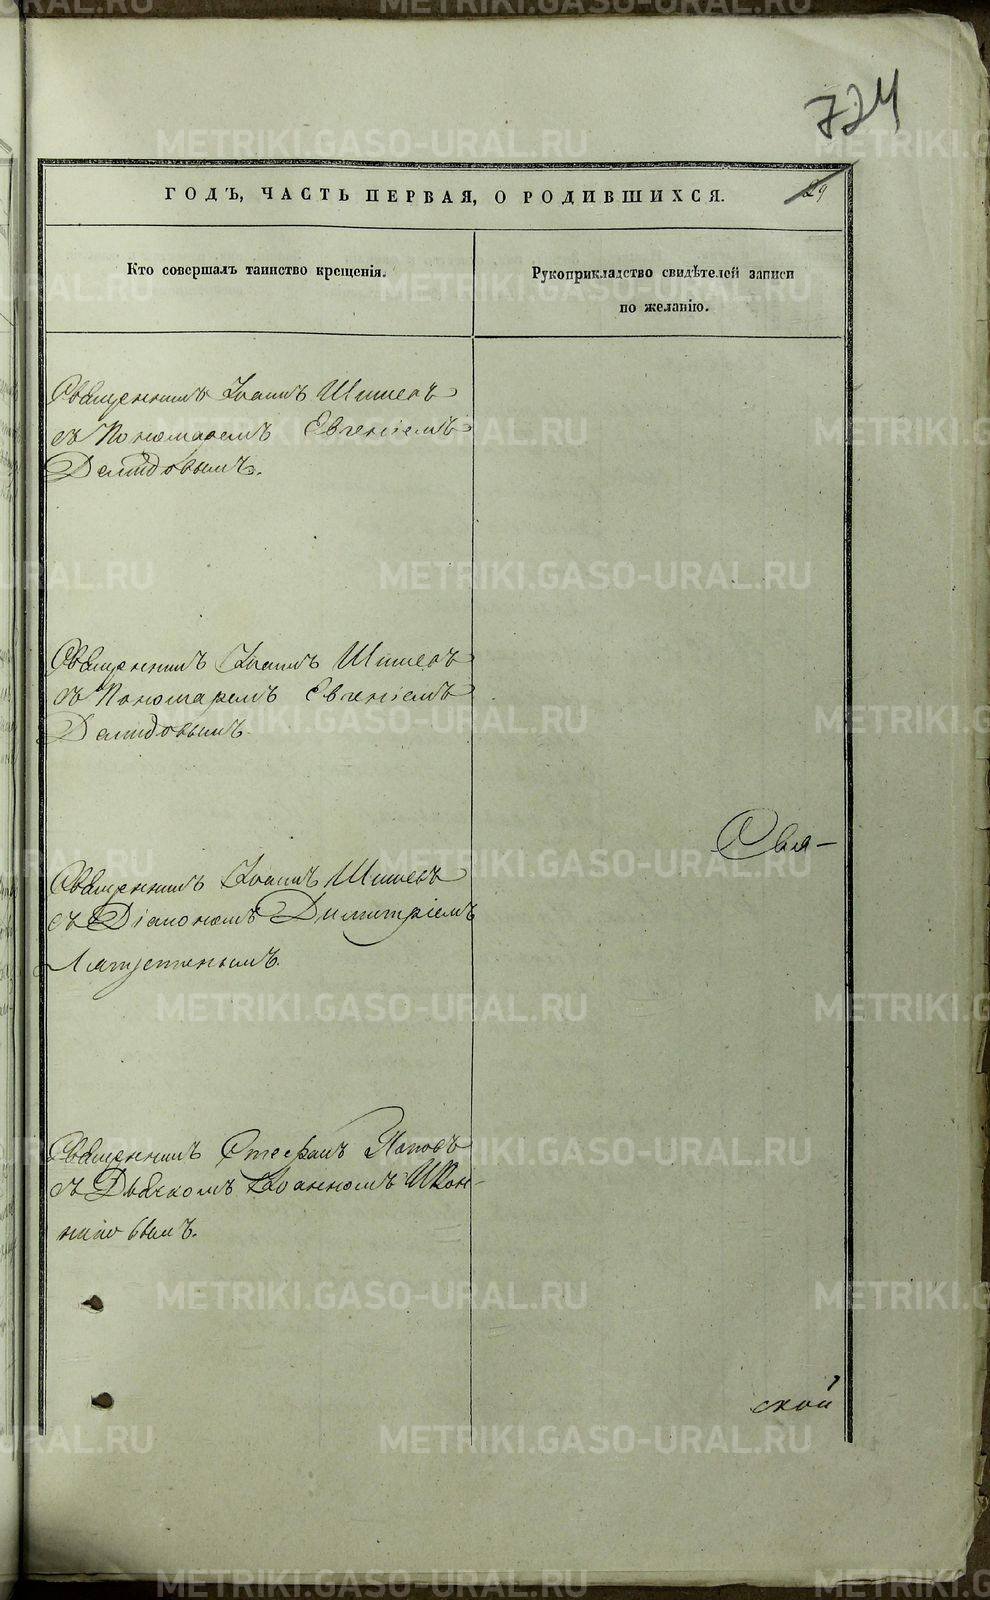 724
ГОДЪ, ЧАСТЬ ПЕРВАЯ, О РОДИВШИХСЯ.
29
Кто совершалъ таинство крещенія.
Рукоприкладство свидѣтелей записи
по желанію.
Священникъ Іоаннъ Шишевъ
съ Пономаремъ Евгеніемъ
Демидовымъ.
Священникъ Іоаннъ Шишевъ
съ Пономаремъ Евгеніемъ
Демидовымъ.
Свя-
Священникъ Іоаннъ Шишевъ
съ Діакономъ Димитріемъ
Священникъ Стефанъ Поповъ
съ Дьячкомъ Іоанномъ Икон-
никовымъ.
ской
METRIKI.GASO-URAL.RU